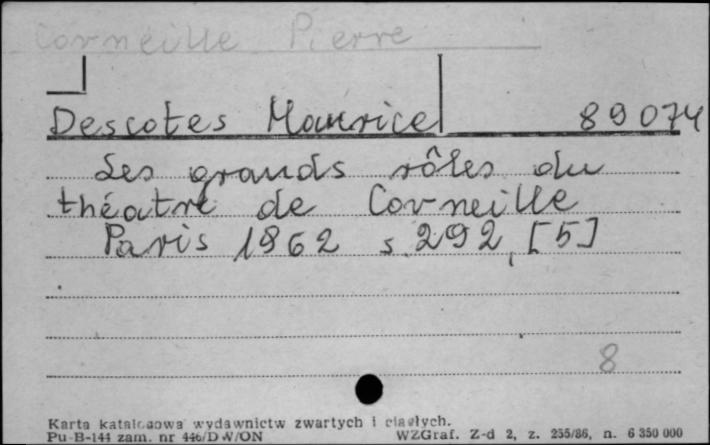 Corneille Pierre
Descotes Maurice 89074
Les grands rôles du
théatre de Corneille
Paris 1962 s. 292, [5]
8
Karta katalogowa wydawnictw zwartych i ciągłych.
Pu-B-144 zam. nr 446/DW/ON WZGraf. Z-d 2, z. 255/86, n. 6 350 000